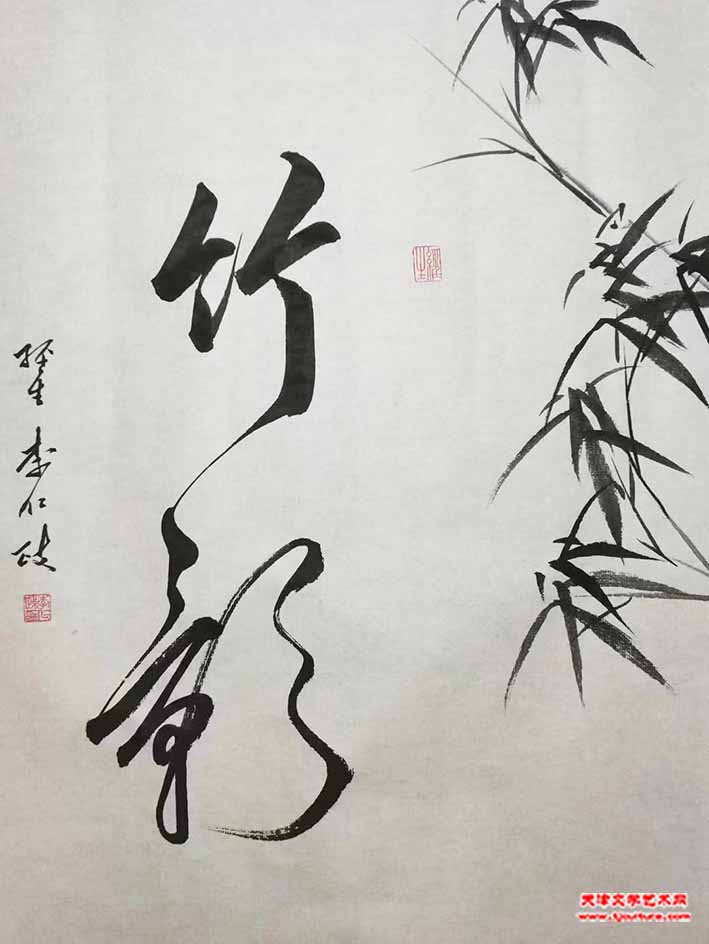 竹影
生 李仁
天津文学艺术网
www.tjculture.com